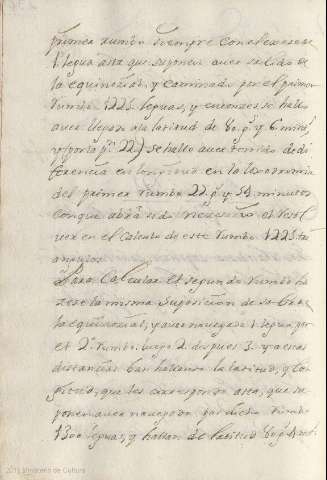 primer rumbo siempre con el exceso de
1. legua asta que suponen aver salido de
la equinocial, y caminado por el primer
Rumbo 1225 leguas, y entonces se hallo
aver llegado a la latitud de 80. g.s y 6. minu.
y (por la p.e 22) se hallo aver tenido de di
ferencia en longitud en la Loxodromia
del primer Rumbo 22. g.s y 54 minutos
conque abrá sido necesario el resol
ver en el calculo de este Rumbo 1225. tri
angulos.
Para Calcular el segundo Rumbo ha
zese la misma suposicion de so
la equinocial, y aver navegado 1. legua por
el 2.º Rumbo, luego 2. despues 3. y a estas
distancias van hallando la latitud, y lon
gitud, que les corresponde asta, que su
ponen aver navegado por dicho Rumbo
1300 leguas, y hallan de latitud 80. g.s
2011 Ministerio de Cultura